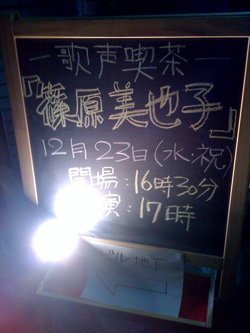 —歌声喫茶—
『篠原美也子』
12月23日(水・祝)
開場:16時30分
演:17時
地下